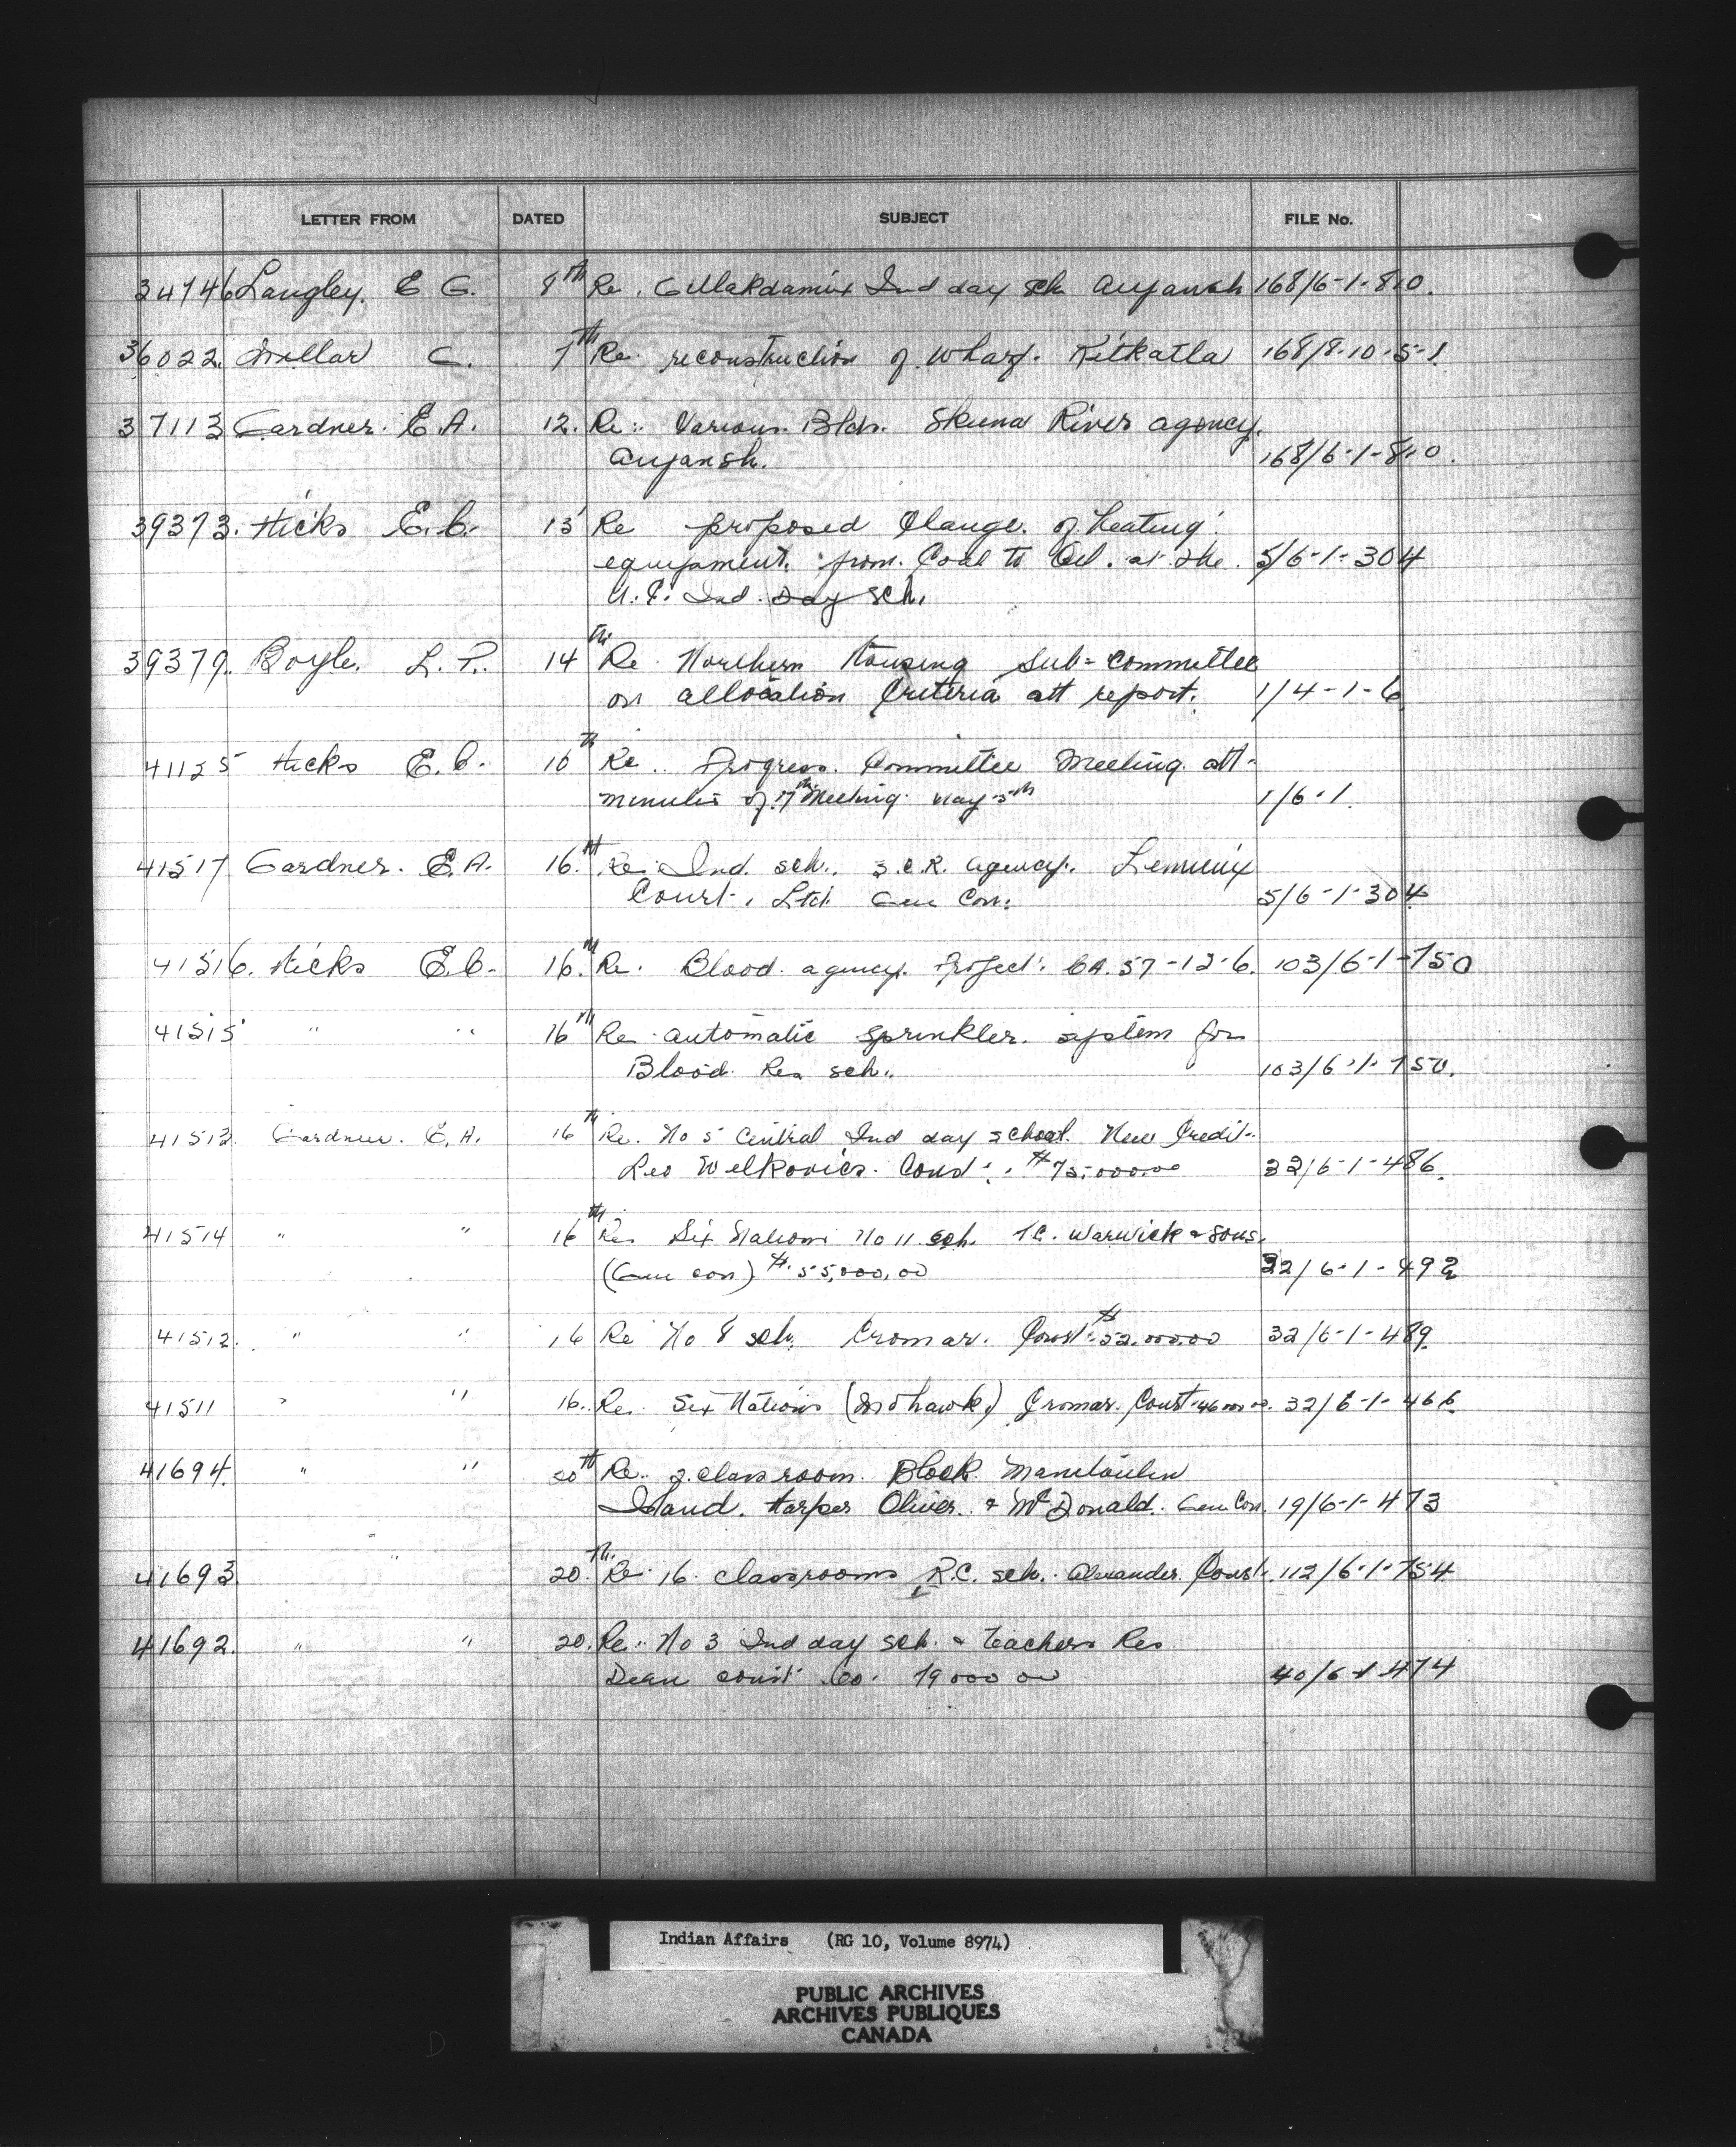 LETTER FROM DATED SUBJECT FILE No.
34746 Langley. E G. 8th Re. Gullakdamix Ind day sch Aiyansh 168/6-1-810.
36022. Millar C. 7th Re reconstruction of wharf. Kitkatla 168/8-10-5-1
37113 Gardner. E.A. 12. Re: Various Bldn. Skeena River agency.
Aiyansh. 168/6-1-810.
39373. Hicks E.C. 13 Re proposed Change. of heating
equipment. from. Coal to Oil. at the. 5/6-1-304
U.C. Ind. Day sch.
39379. Boyle. L. P. 14th Re Northern Housing Sub-Committee
on allocation Criteria att report. 1/4-1-6
41125 Hicks E.C. 10th Re.. Progress. Committee Meeting. att-
minutes of 17th Meeting. May 5th 1/6-1.
41517 Gardner. E.A. 16.th Re: Ind. sch. agency. Lemieux
Const. Ltd. Gen Con. 5/6-1-304
41516. Hicks E.C. 16.th Re. Blood. agency. Project. CA. 57-12-6. 103/6-1-750
41515 " " 16th Re automatic sprinkler. system for
Blood. Res sch. 103/6-1-750.
41513. Gardner. E.A. 16th Re. No 5 Central Ind day school. New Credit.
Leo Const. $75,000.00 32/6-1-486.
41514 " " 16th Re. Six Nations No 11 sch. T.C. Warwick & Sons.
(Gen con) $55,000.00 32/6-1-492
41512. " " 16 Re No 8 sch. Cromar. Const. $52,000.00 32/6-1-489.
41511 " " 16.. Re. Six Nations (Mohawk) Cromar. Const. 32/6-1-466.
41694. " " 20th Re.. 2. classroom. Block. Manitoulin
Island. Harper Oliver. & McDonald. Gen Con. 19/6-1-473
41693. " 20.th Re. 16. classrooms R.C. sch. Alexander Const. 112/6-1-754
41692. " " 20. Re.. No 3 Ind day sch. & teachers Res
Dean const. Co. 19000 00 40/6-1-474
Indian Affairs (RG 10, Volume 8974)
PUBLIC ARCHIVES
ARCHIVES PUBLIQUES
CANADA